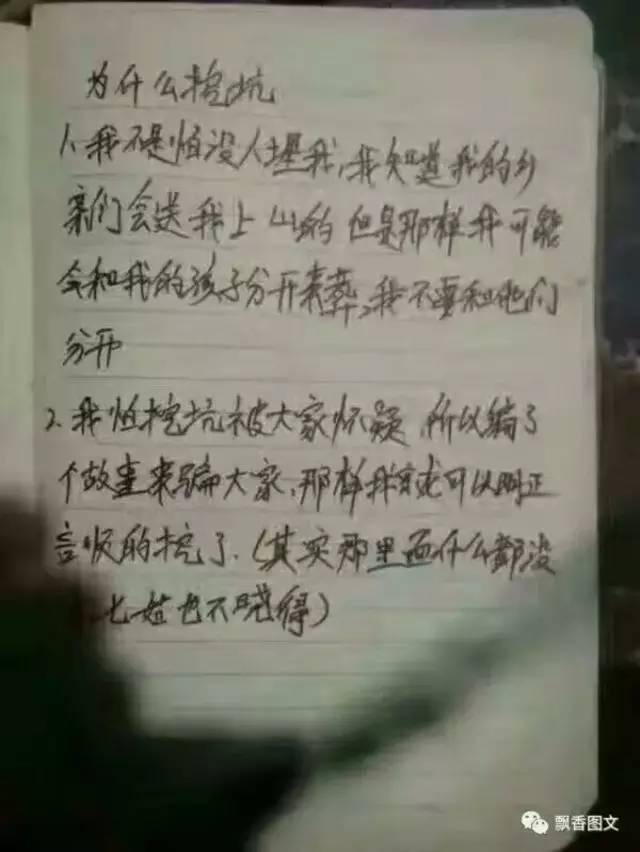 为什么挖坑
1、我不是怕没人埋我,我知道我的乡
亲们会送我上山的 但是那样我可能
会和我的孩子分开来葬,我不要和他们
分开
2、我怕挖坑被大家怀疑,所以编了
个故事来骗大家,那样我就可以明正
言顺的挖了.(其实那里面什么都没
七姑也不晓得)
飘香图文